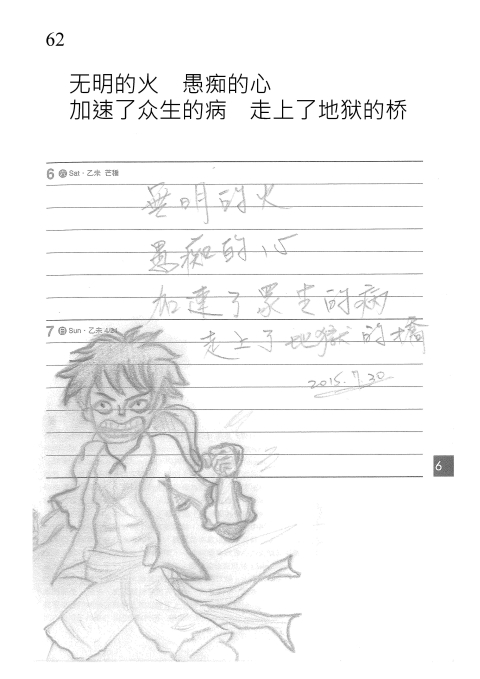 62
无明的火 愚痴的心
加速了众生的病 走上了地狱的桥
6 六 Sat · 乙未 芒種
無明的火
愚痴的心
加速了眾生的病
7 日 Sun · 乙未 4/21
走上了地獄的橋
2015.7.30
6